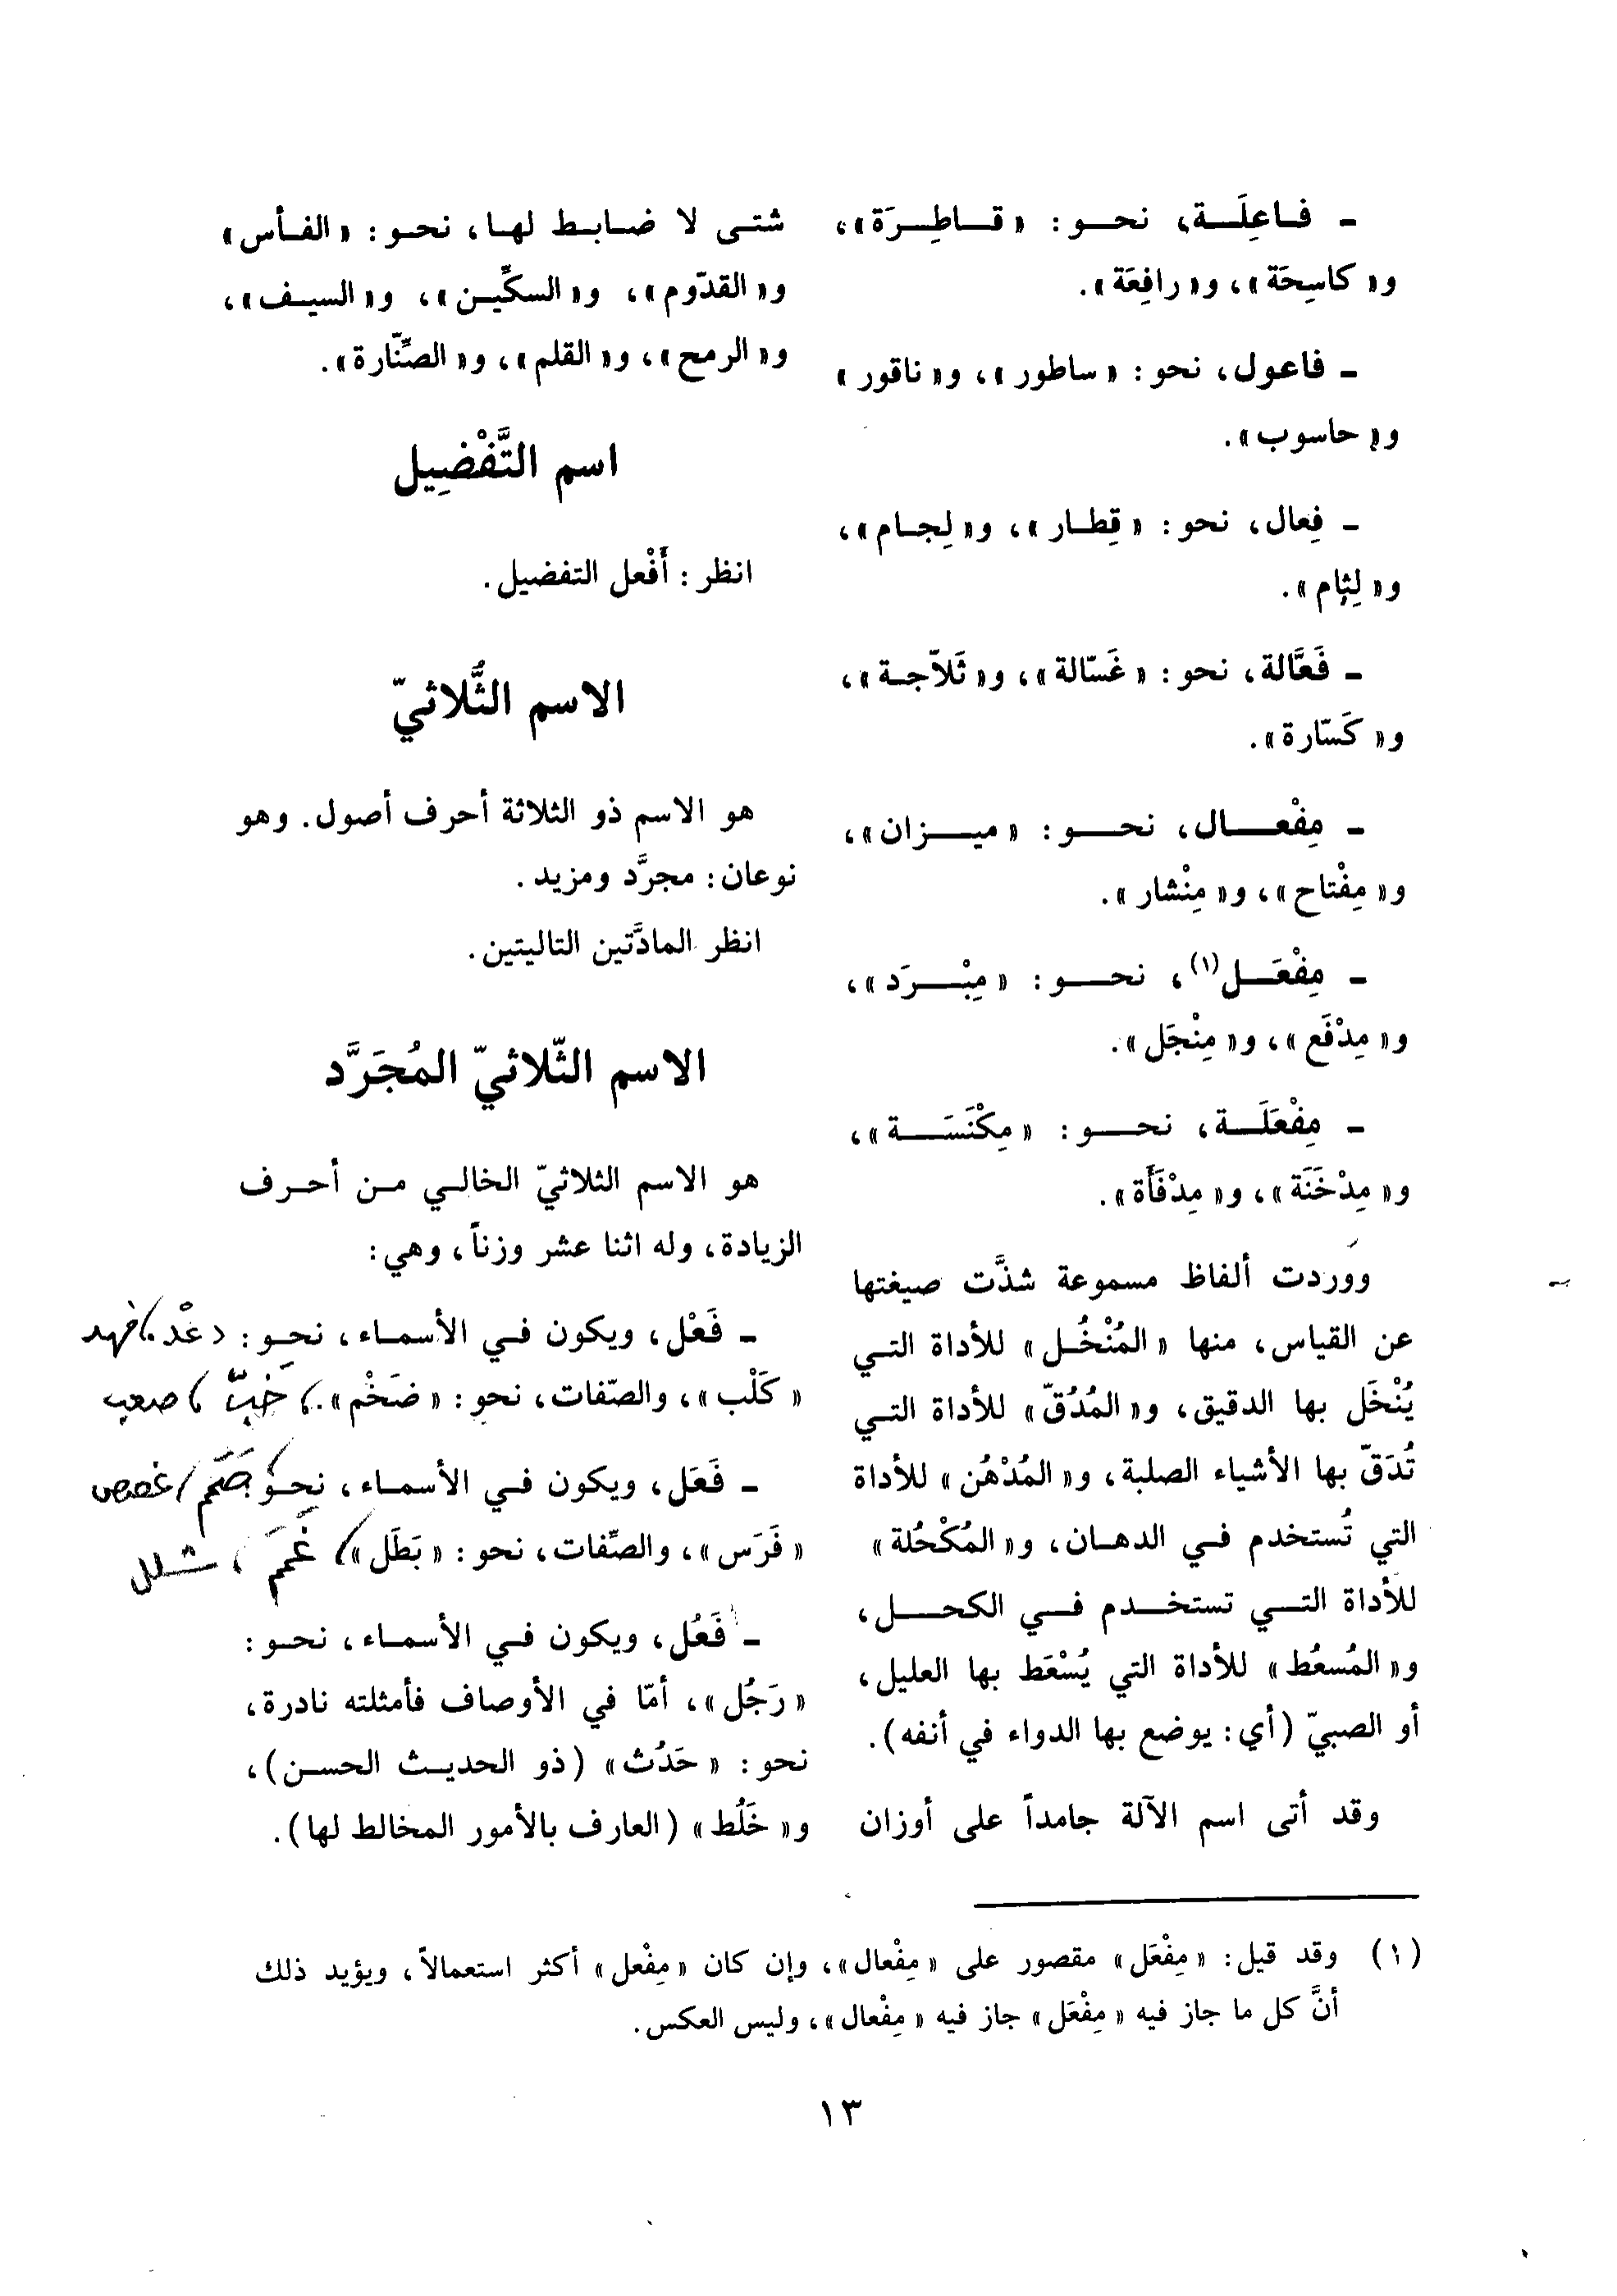 ـ فاعِلَة، نحو: «قاطِرَة»،
و«كاسِحَة»، و«رافِعَة».
ـ فاعول، نحو: «ساطور»، و«ناقور»
و«حاسوب».
ـ فِعال، نحو: «قِطار»، و«لِجام»،
و«لِثام».
ـ فَعَّالة، نحو: «غَسّالة»، و«ثَلاّجة»،
و«كَسّارة».
ـ مِفْعال، نحو: «ميزان»،
و«مِفْتاح»، و«مِنْشار».
ـ مِفْعَل(١)، نحو: «مِبْرَد»،
و«مِدْفَع»، و«مِنْجَل».
ـ مِفْعَلَة، نحو: «مِكْنَسَة»،
و«مِدْخَنَة»، و«مِدْفَأَة».
ووردت ألفاظ مسموعة شذَّت صيغتها
عن القياس، منها «المُنْخُل» للأداة التي
يُنْخَل بها الدقيق، و«المُدُقّ» للأداة التي
تُدَقّ بها الأشياء الصلبة، و«المُدْهُن» للأداة
التي تُستخدم في الدهان، و«المُكْحُلة»
للأداة التي تستخدم في الكحل،
و«المُسعُط» للأداة التي يُسْعَط بها العليل،
أو الصبيّ (أي: يوضع بها الدواء في أنفه).
وقد أتى اسم الآلة جامداً على أوزان
شتى لا ضابط لها، نحو: «الفأس»
و«القدّوم»، و«السكِّين»، و«السيف»،
و«الرمح»، و«القلم»، و«الصِّنّارة».
اسم التَّفْضِيل
انظر: أَفْعل التفضيل.
الاسم الثُّلاثيّ
هو الاسم ذو الثلاثة أحرف أصول. وهو
نوعان: مجرَّد ومزيد.
انظر المادَّتين التاليتين.
الاسم الثّلاثيّ المُجَرَّد
هو الاسم الثلاثيّ الخالي من أحرف
الزيادة، وله اثنا عشر وزناً، وهي:
ـ فَعْل، ويكون في الأسماء، نحو: فهد
«كَلْب»، والصّفات، نحو: «ضَخْم». صعب
ـ فَعَل، ويكون في الأسماء، نحو:
«فَرَس»، والصِّفات، نحو: «بَطَل» شلل
ـ فَعُل، ويكون في الأسماء، نحو:
«رَجُل»، أمّا في الأوصاف فأمثلته نادرة،
نحو: «حَدُث» (ذو الحديث الحسن)،
و«خَلُط» (العارف بالأمور المخالط لها).
(١) وقد قيل: «مِفْعَل» مقصور على «مِفْعال»، وإن كان «مِفْعل» أكثر استعمالاً، ويؤيد ذلك
أنَّ كل ما جاز فيه «مِفْعَل» جاز فيه «مِفْعال»، وليس العكس.
١٣